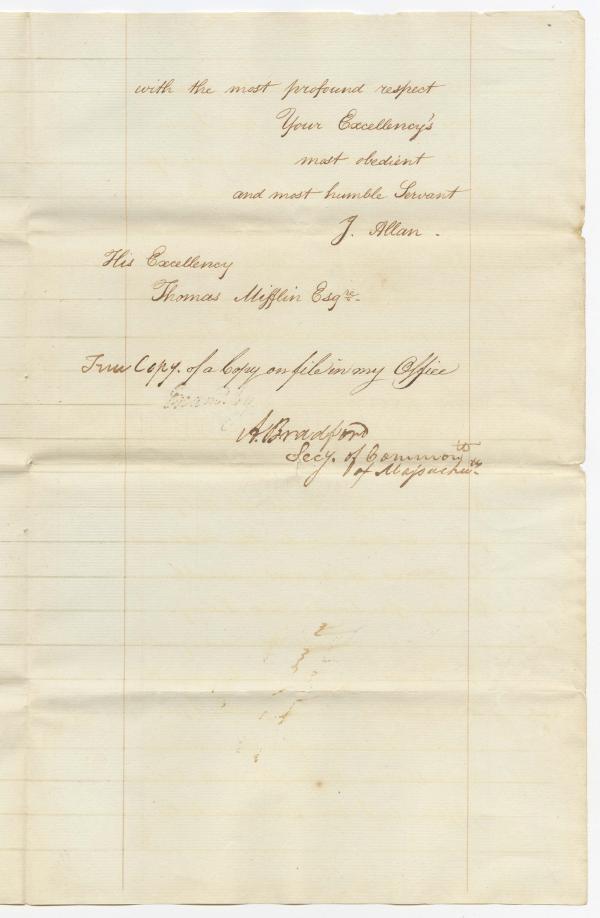 with the most profound respect
Your Excellency's
most obedient
and most humble Servant
J. Allan.
His Excellency
Thomas Mifflin Esqre.
True Copy. of a Copy on file in my Office
A. Bradford
Secy. of Commonth
of Massachuts.